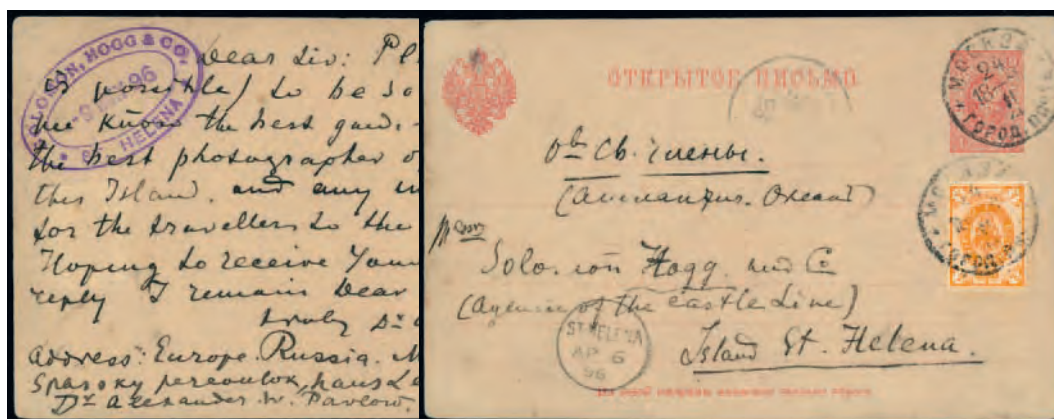 SOLOMON, HOGG & CO.
96
ST HELENA
Dear Sir: Pl
is possible) to be so
me know the best guide
the best photographer o
this Island. and any in
for the travellers to the
Hoping to receive Your
reply I remain Dear
truly Dr
address: Europe. Russia. M
Spassky pereoulok, haus Le
Dr Alexander W. Pavlow.
ОТКРЫТОЕ ПИСЬМО
МОСКВА
18
ГОРОД. ПОЧТА
Объ Св. Елены.
(Атлантич. Океанъ)
МОСКВА
ГОРОД. ПОЧ
Solomon Hogg and Co
(Agence of the Castle Line)
Island St. Helena.
ST HELENA
AP 6
96